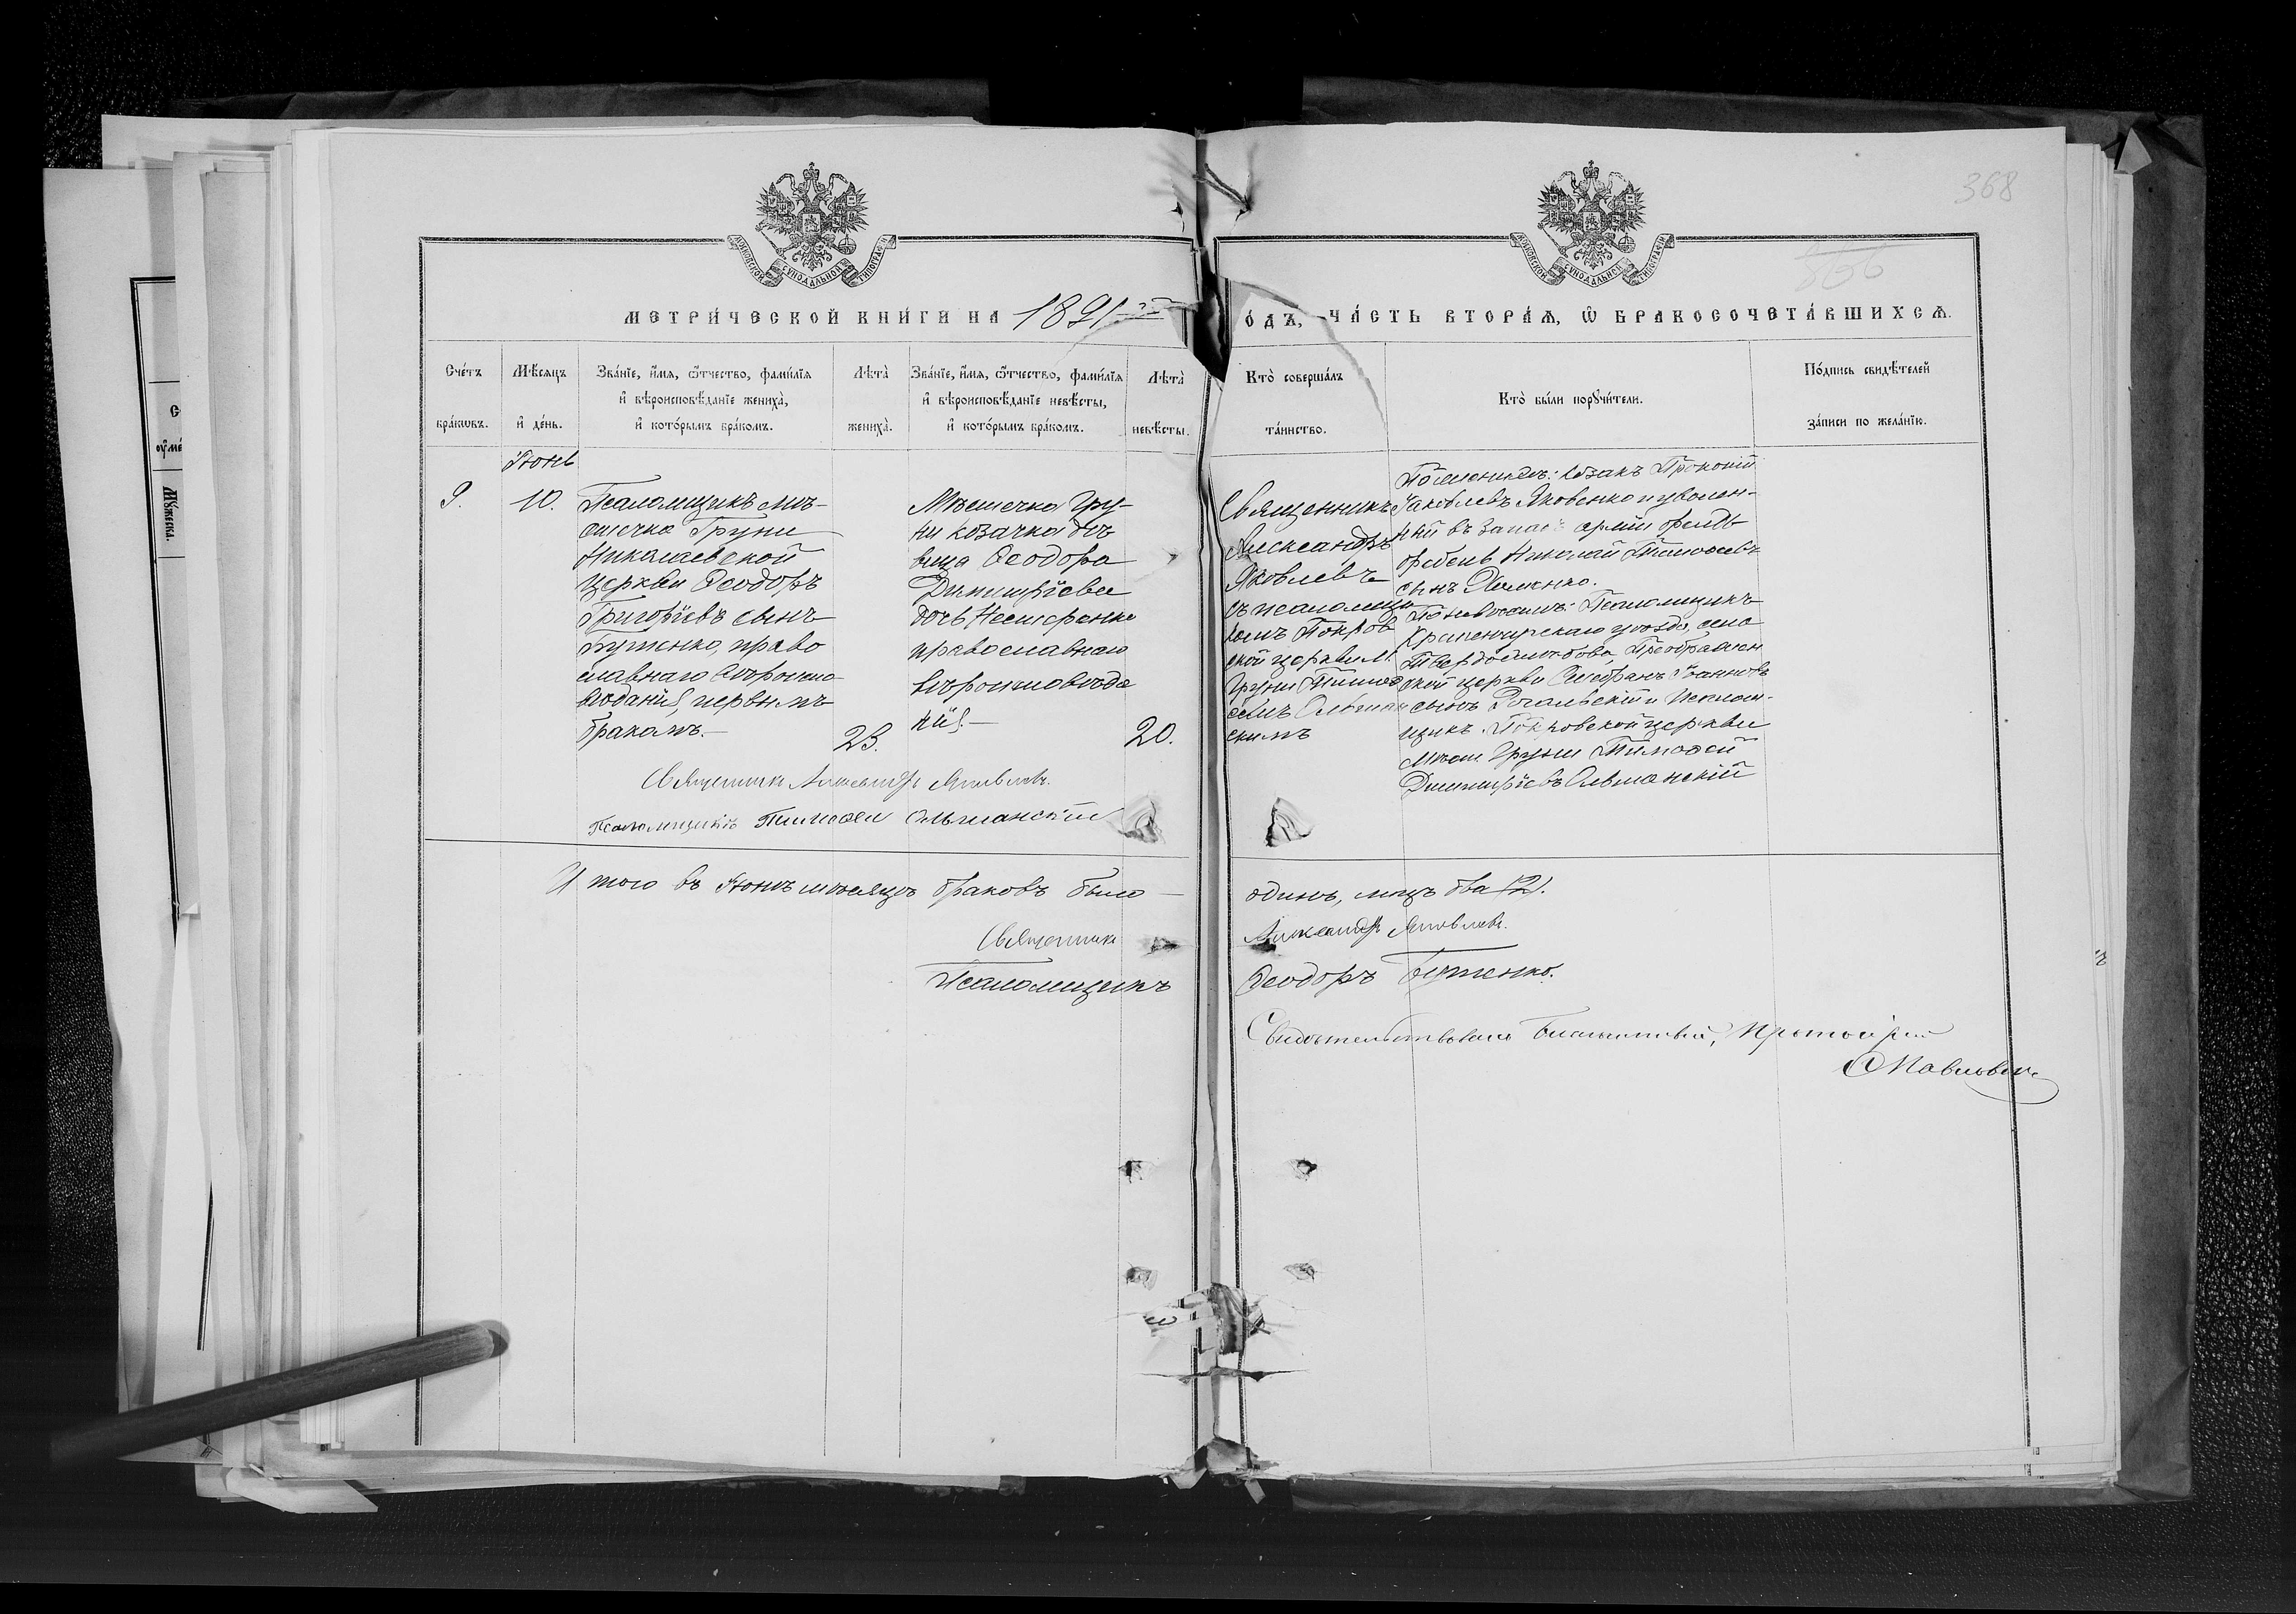 368
366
МОСКОВСКОЙ СѴНОДАЛЬНОЙ ТИПОГРАФІИ
МОСКОВСКОЙ СѴНОДАЛЬНОЙ ТИПОГРАФІИ
МЕТРИ́ЧЕСКОЙ КНИ́ГИ НА 1891
О́ДЪ, ЧА́СТЬ ВТОРА́Ѧ, Ѡ҆ БРАКОСОЧЕТА́ВШИХСѦ.
Сче́тъ бра́кѡвъ.
Мѣ́сяцъ и҆ де́нь.
Зва́нїе, и҆́мя, ѻ҆́тчество, фами́лїя
и҆ вѣроисповѣ́данїе жениха̀,
и҆ кото́рымъ бра́комъ.
Лѣта̀ жениха̀.
Зва́нїе, и҆́мя, ѻ҆́тчество, фами́лїя
и҆ вѣроисповѣ́данїе невѣ́сты,
и҆ кото́рымъ бра́комъ.
Лѣта̀ невѣ́сты.
Кто̀ соверша́лъ
та́инство.
Кто̀ бы́ли порꙋчи́тели.
По́дпись свидѣ́телей
за́писи по жела́нїю.
Іюнь
9.
10.
Псаломщикъ мѣ-
стечка Груни
Николаевской
церкви Ѳеодоръ
Григоріевъ сынъ
Бутенко, право
славнаго вѣроиспо-
вѣданія, первымъ
бракомъ.—
23.
Мѣстечка Гру-
ни козачка дѣ
вица Ѳеодора
Димитріева
дочь Нестеренко
православнаго
вѣроисповѣда
нія.—
20.
Священникъ
Александръ
Яковлевъ
съ псаломщи
комъ Покров
ской церкви м.
Груни Тимоѳ
еемъ Ольшан
скимъ
По женихѣ: козакъ Прокопій
Іаковлевъ Яковенко и уволен-
ный въ запасъ арміи фельд
фебель Николай Тимоѳеевъ
сынъ
По невѣстѣ: Псаломщикъ
уѣзда, села
Преображен
ской церкви Стефанъ Іоанновъ
сынъ Рогальскій и Псалом-
щикъ Покровской церкви
мѣст. Груни Тимоѳей
Димитріевъ Ольшанскій
Священникъ Александръ Яковлевъ.
Псаломщикъ Тимоѳей Ольшанскій
Итого въ Іюнѣ мѣсяцѣ браковъ было — одинъ, лицъ два (2).
Священникъ Александръ Яковлевъ.
Псаломщикъ Ѳеодоръ Бутенко.
Свидѣтельствовалъ Благочинный, Протоіерей
Павловск
Мꙋ́жеска.